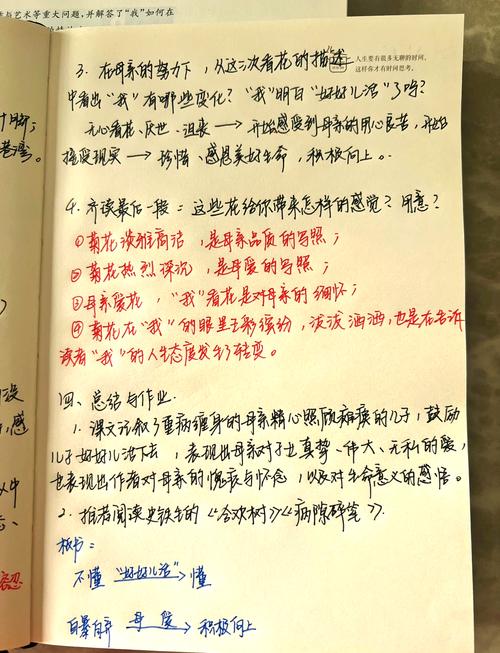 与艺术等重大问题,并解答了“我”如何在
人生要有很多无聊的时间,
这样你才有时间思考。
3. 在母亲的努力下,从这三次看花的描述
中看出“我”有哪些变化?“我”明白“好好儿活”了吗?
无心看花、厌世、沮丧→开始感受到母亲的用心良苦,开始
接受现实→珍惜、感恩美好生命,积极向上。
4. 齐读最后一段:这些花给你带来怎样的感觉?用意?
①菊花淡雅高洁,是母亲品质的写照;
②菊花热烈深沉,是母爱的写照;
③母亲爱花,“我”看花是对母亲的缅怀;
④菊花在“我”的眼里五彩缤纷,泼泼洒洒,也是在告诉
读者“我”的人生态度发生了转变。
四、总结与作业.
1. 课文记叙了重病缠身的母亲精心照顾瘫痪的儿子,鼓励
儿子好好儿活下去,表现出母亲对子也真挚、伟大、无私的爱,
也表现出作者对母亲的愧疚与怀念,以及对生命意义的感悟。
2. 推荐阅读史铁生的《合欢树》《病隙碎笔》.
板书:
不懂 “好好儿活”→ 懂
自暴自弃 母爱→ 积极向上